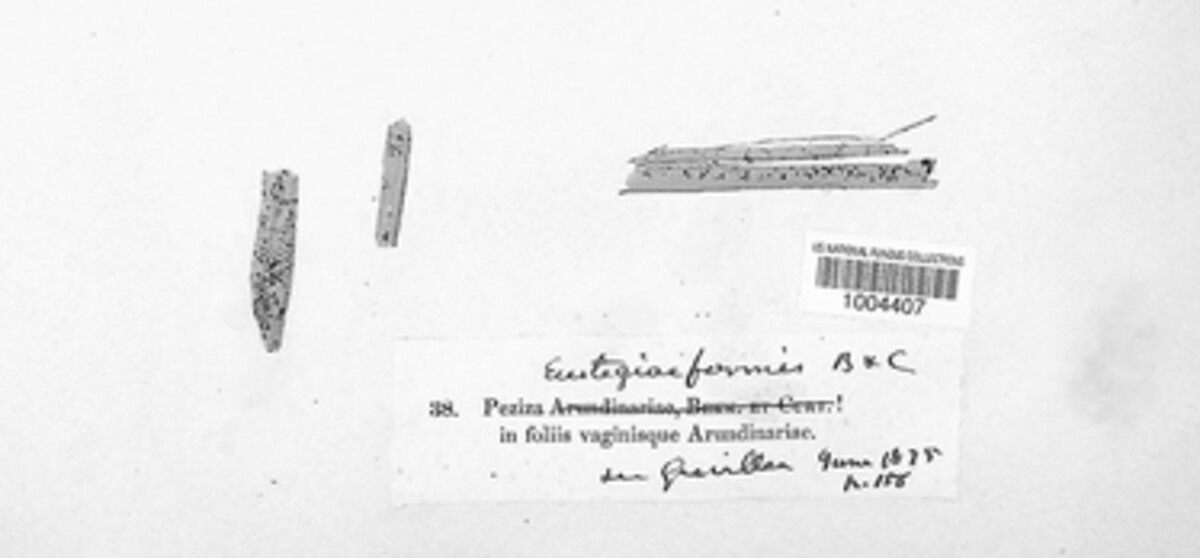 US NATIONAL FUNGUS COLLECTIONS
1004407
Eustegiaeformis B & C
38. Peziza Arundinariae, Berk. et Curt.!
in foliis vaginisque Arundinariae.
see Grevillea June 1875
p. 156